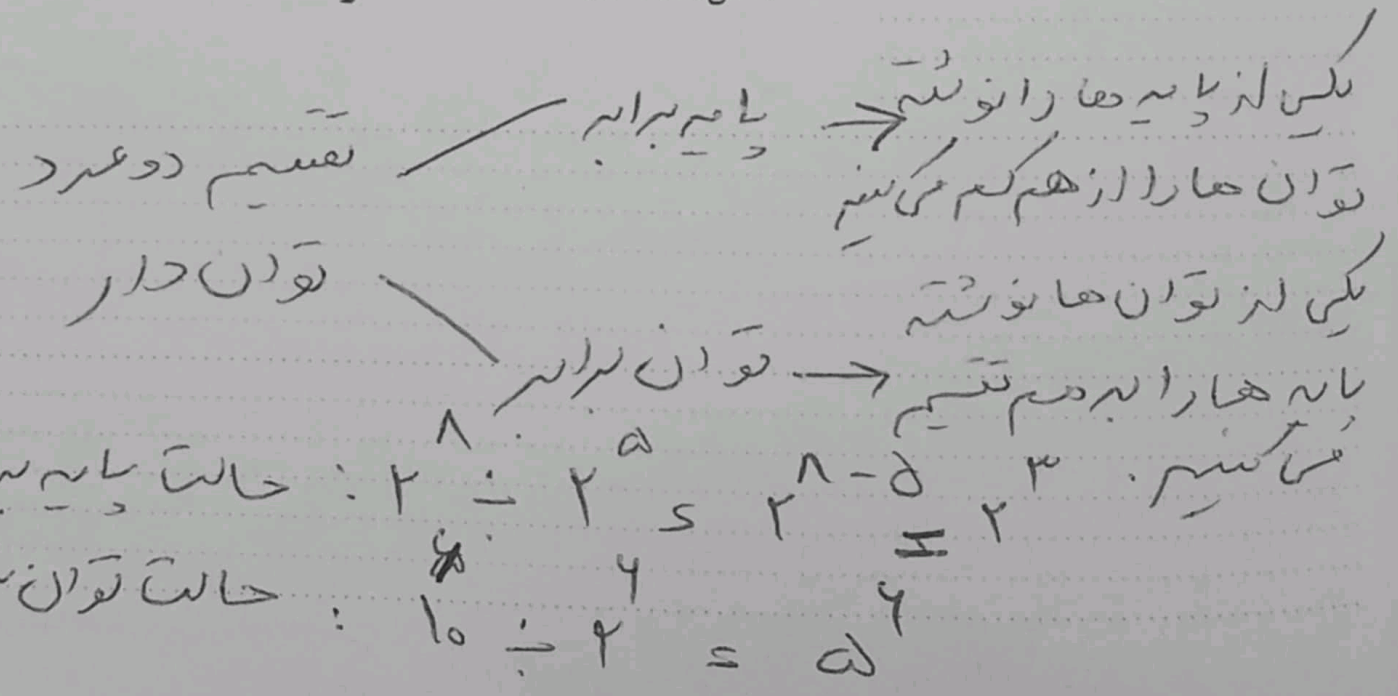 تقسیم دو عدد
توان دار
پایه برابر → یکی از پایه ها را نوشته
توان ها را از هم کم می کنیم
توان برابر → یکی از توان ها نوشته
پایه ها را بر هم تقسیم
می کنیم.
حالت پایه : ۲^۸ ÷ ۲^۵ = ۲^۸-۵ = ۲^۳
حالت توان : ۱۰^۶ ÷ ۲^۶ = ۵^۶